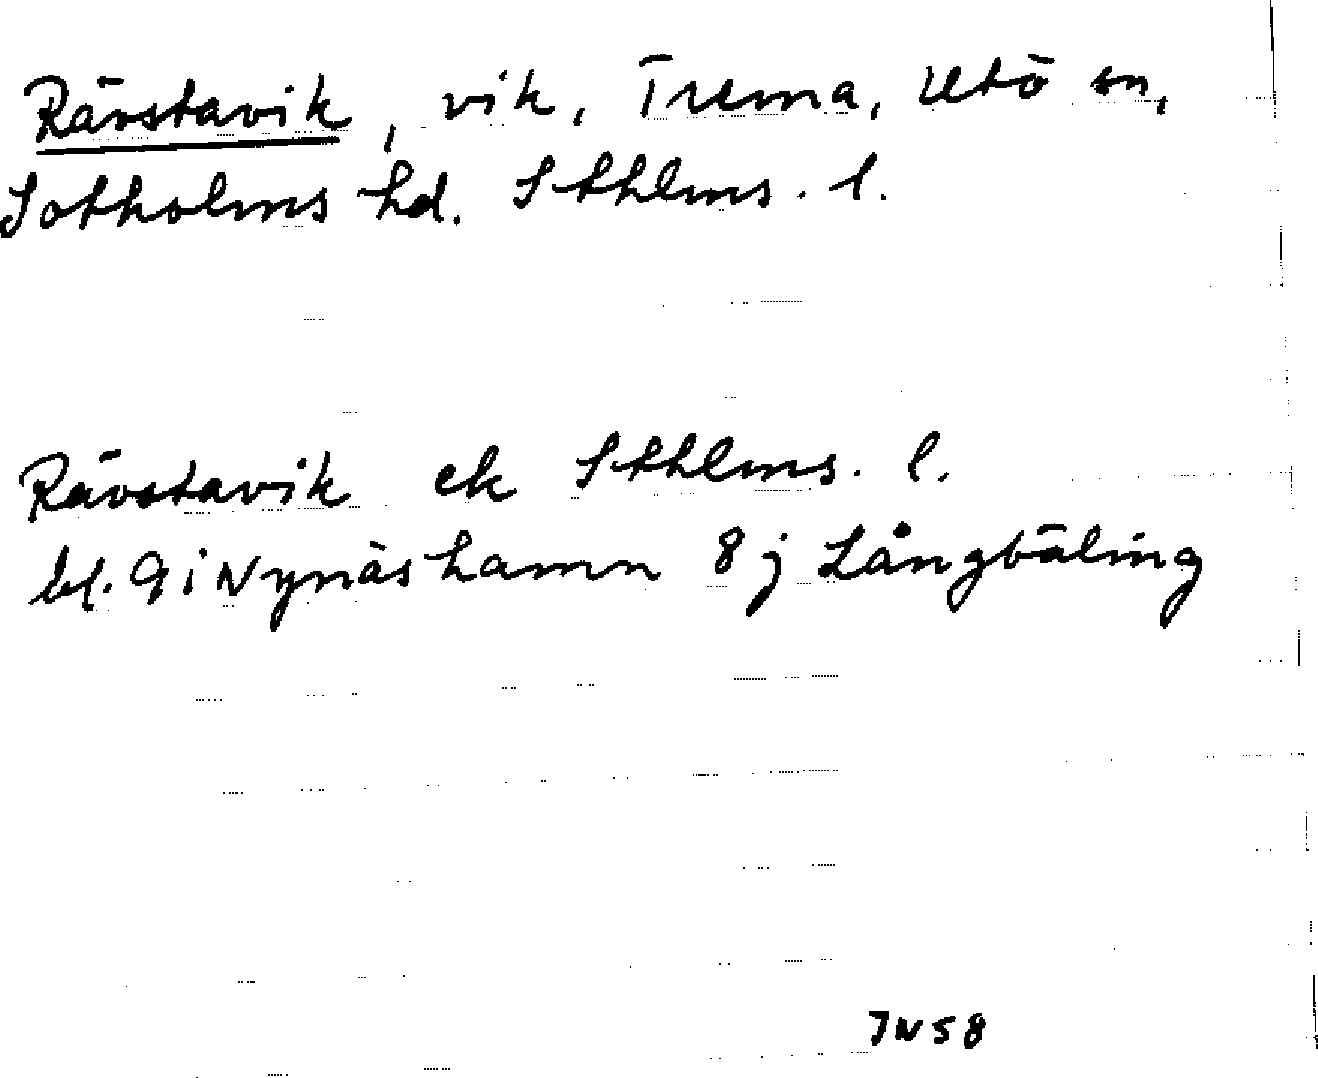 Rävstavik, vik, Trema, Utö sn,
Sotholms hd. Sthlms. l.
Rävstavik ek Sthlms. l.
bl. 9 i Nynäshamn 8 j Långbäling
JN58